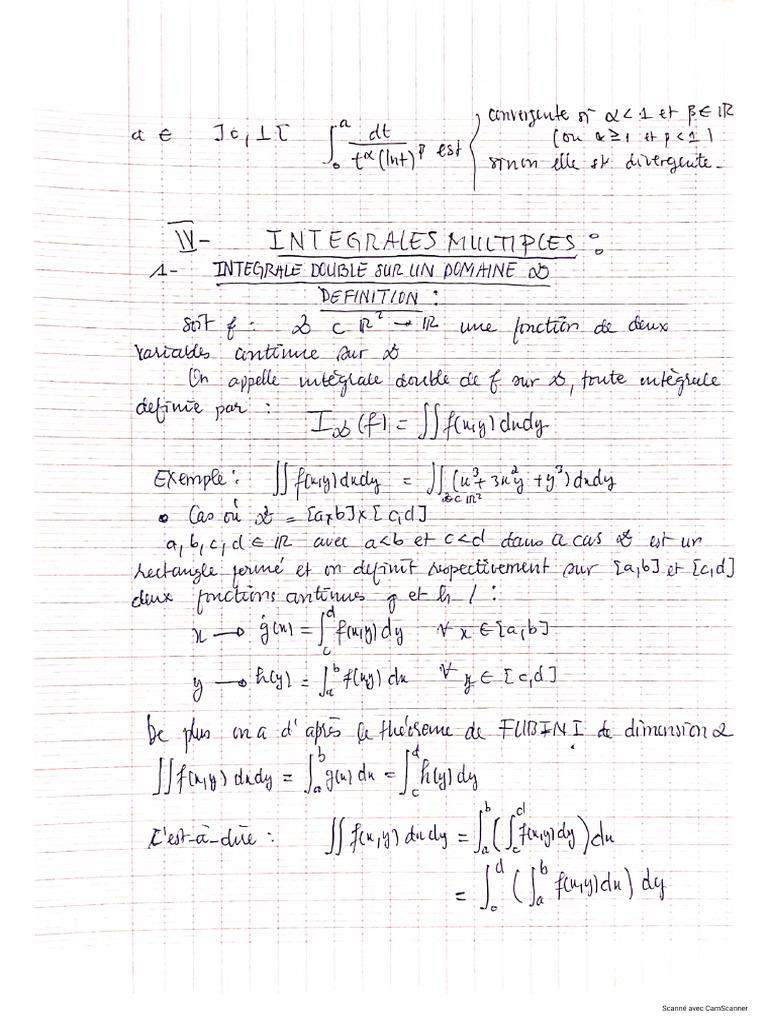 a ∈ ]0,1[ ∫₀ᵃ dt / t^α (ln t)^β est { convergente si α < 1 et β ∈ ℝ
(ou α ≥ 1 et β < 1)
sinon elle est divergente.
IV- INTEGRALES MULTIPLES :
1- INTEGRALE DOUBLE SUR UN DOMAINE D
DEFINITION :
Soit f : D ⊂ ℝ² → ℝ une fonction de deux
variables continue sur D
On appelle intégrale double de f sur D, toute intégrale
definie par : I_D (f) = ∬ f(x,y) dxdy
Exemple : ∬ f(x,y) dxdy = ∬_{D⊂ℝ²} (x³ + 3x²y + y³) dxdy
• Cas où D = [a,b] x [c,d]
a, b, c, d ∈ ℝ avec a<b et c<d dans ce cas D est un
rectangle fermé et on definit respectivement sur [a,b] et [c,d]
deux fonctions continues g et h / :
x → g(x) = ∫_c^d f(x,y) dy ∀ x ∈ [a,b]
y → h(y) = ∫_a^b f(x,y) dx ∀ y ∈ [c,d]
De plus on a d'après le théorème de FUBINI de dimension 2
∬ f(x,y) dxdy = ∫_a^b g(x) dx = ∫_c^d h(y) dy
C'est-à-dire : ∬ f(x,y) dxdy = ∫_a^b (∫_c^d f(x,y) dy) dx
= ∫_c^d (∫_a^b f(x,y) dx) dy
Scanné avec CamScanner